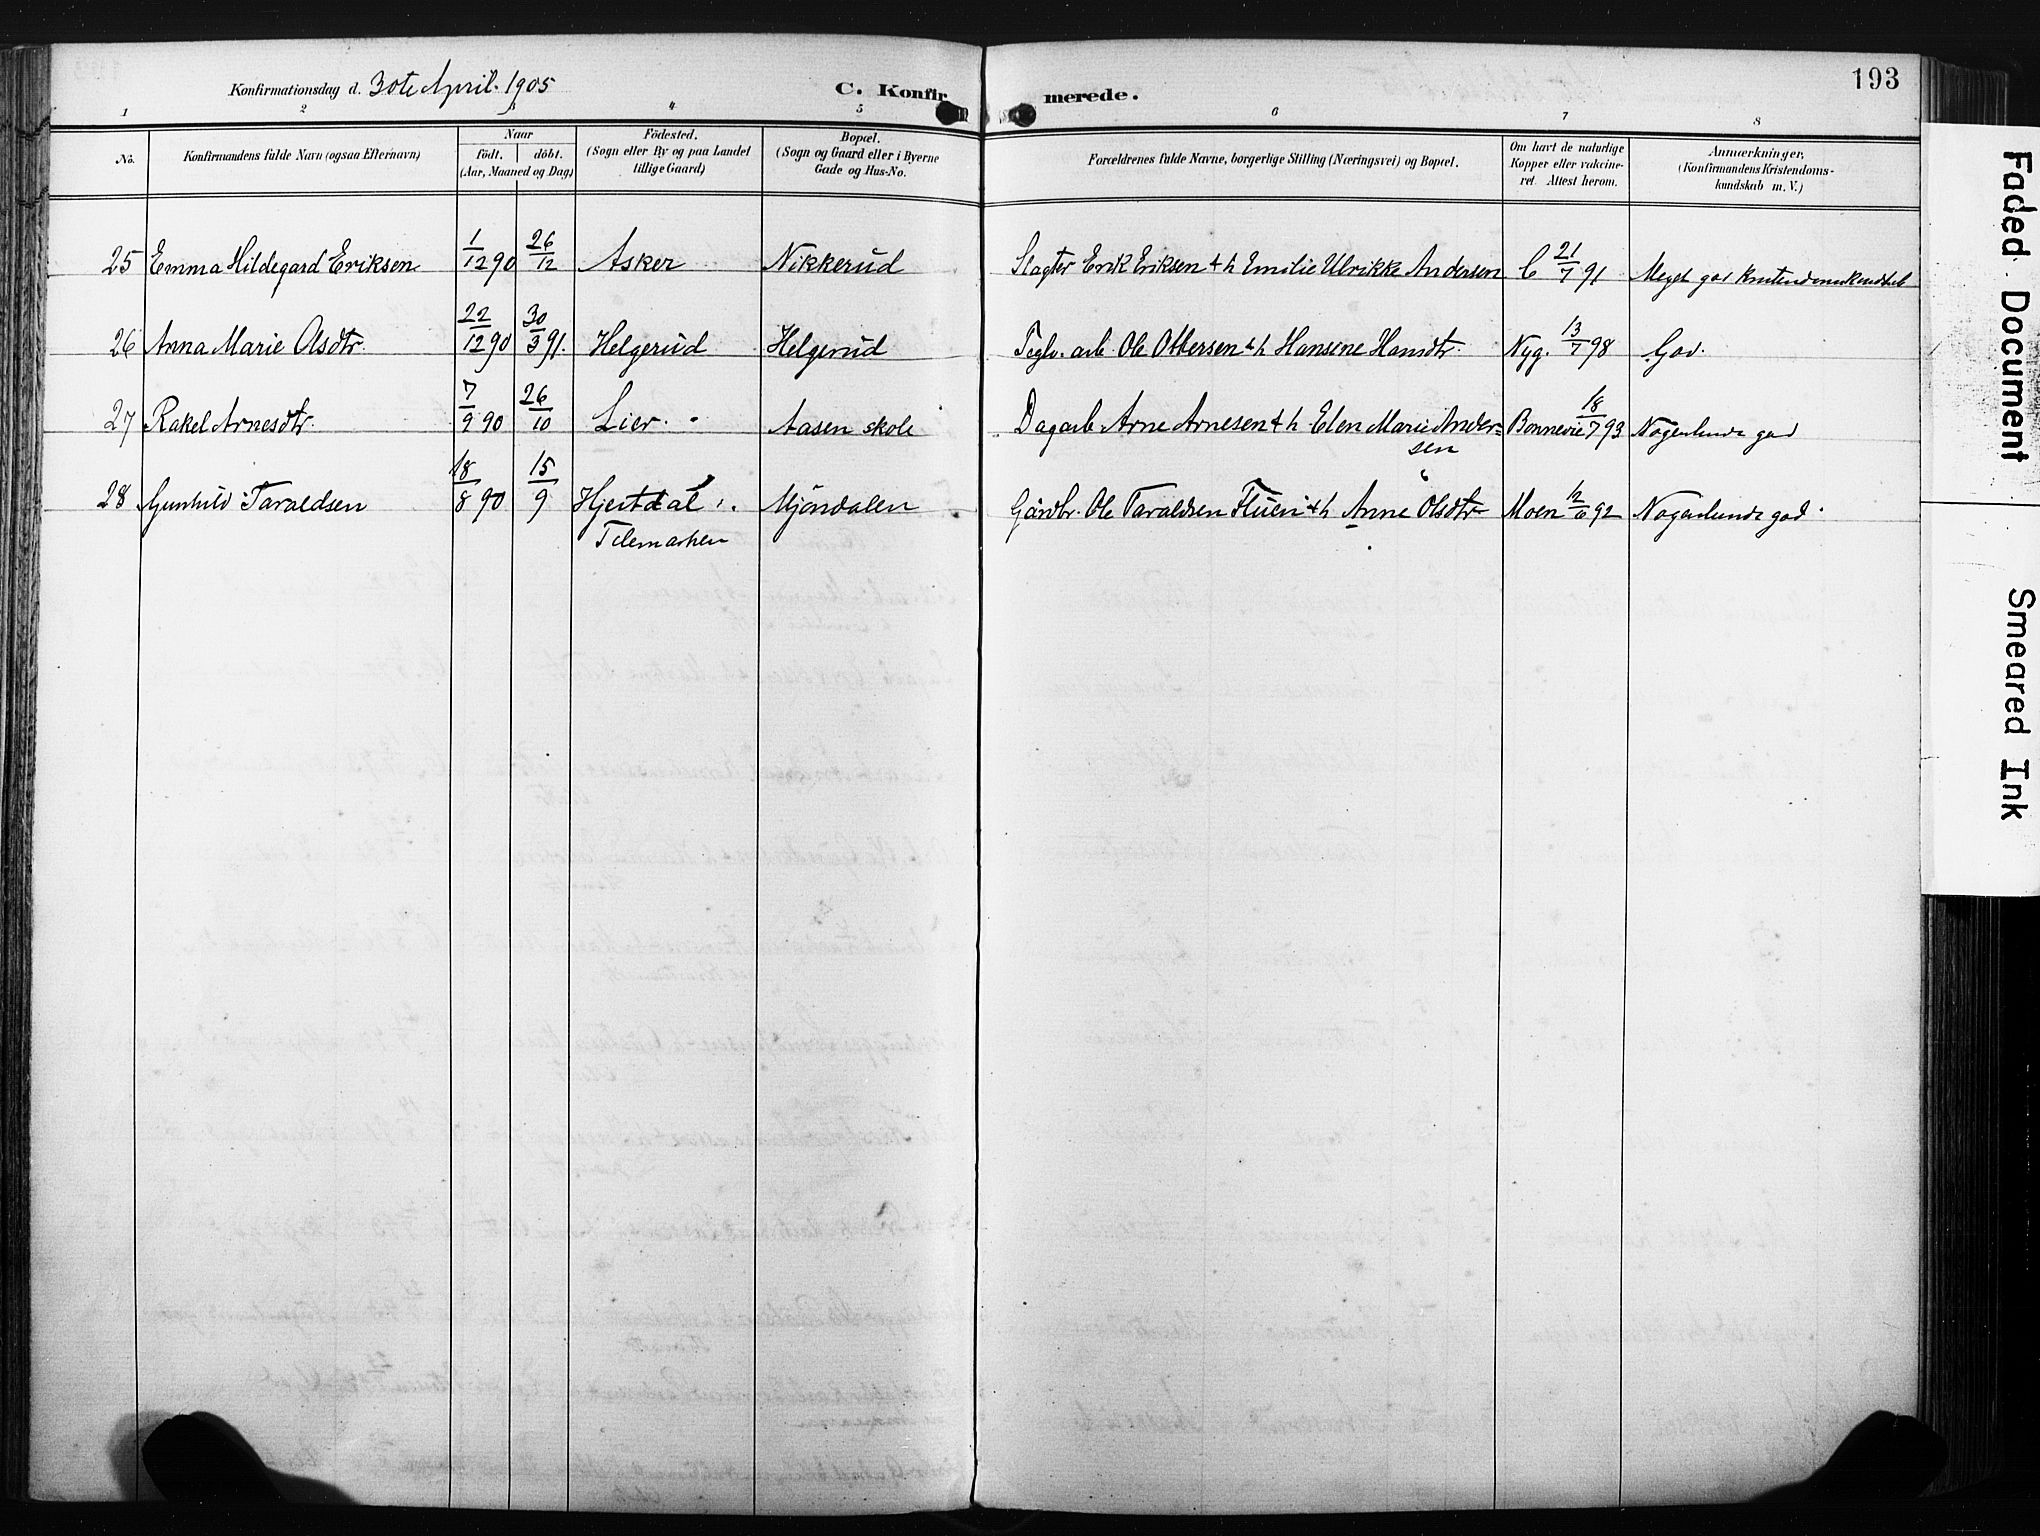 193
Konfirmationsdag d. 30te April. 1905
C. Konfirmerede.
1 2 3 4 5 6 7 8
No.
Konfirmandens fulde Navn (ogsaa Efternavn)
Naar
født. døbt.
(Aar, Maaned og Dag)
Fødested.
(Sogn eller By og paa Landet
tillige Gaard)
Bopæl.
(Sogn og Gaard eller i Byerne
Gade og Hus-No.
Forældrenes fulde Navne, borgerlige Stilling (Næringsvei) og Bopæl.
Om havt de naturlige
Kopper eller vakcine-
ret. Attest herom.
Anmærkninger,
(Konfirmandens Kristendoms-
kundskab m. V.)
25 Emma Hildegard Eriksen 1/12 90 26/12 Asker Nikkerud Slagter Erik Eriksen & h Emilie Ulrikke Andersen C 21/7 91 Meget god kristendomskundskab
26 Anna Marie Olsdtr. 22/12 90 30/3 91. Helgerud Helgerud Teglv. arb Ole Ottersen & h Hansene Hansdtr. Nyg. 13/7 98 God.
27 Rakel Arnesdtr. 7/9 90 26/10 Lier. Aasen skole Dagarb. Arne Arnesen & h Elen Marie Ander=
sen Bonnevie 18/7 93 Nogenlunde god
28 Gunhild Taraldsen 18/8 90 15/9 Hjertdal i. Mjøndalen Gårdbr. Ole Taraldsen & h Anne Olsdtr Moen 12/6 92 Nogenlunde god.
Telemarken
Faded Document
Smeared Ink